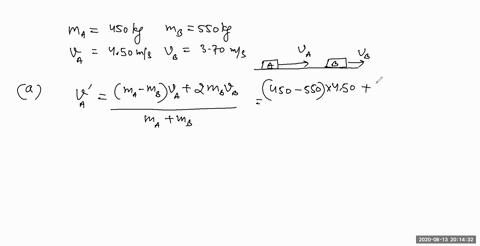 m_A = 450 kg m_B = 550 kg
V_A = 4.50 m/s V_B = 3.70 m/s
V_A V_B
A B
(a) V_A' = (m_A - m_B) V_A + 2 m_B V_B / m_A + m_B = (450 - 550) × 4.50 +
2020-08-13 20:14:32